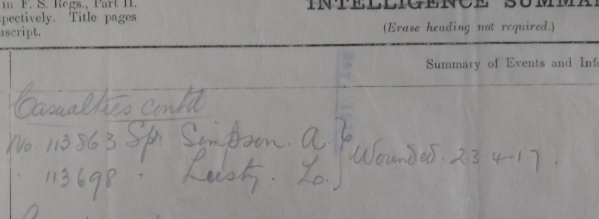 in F. S. Regs., Part II.
pectively. Title pages
uscript.
INTELLIGENCE SUMMA
(Erase heading not required.)
Summary of Events and Info
Casualties contd
No 113863 Spr Simpson. A. } Wounded. 23-4-17.
" 113698 " Lusty. L.